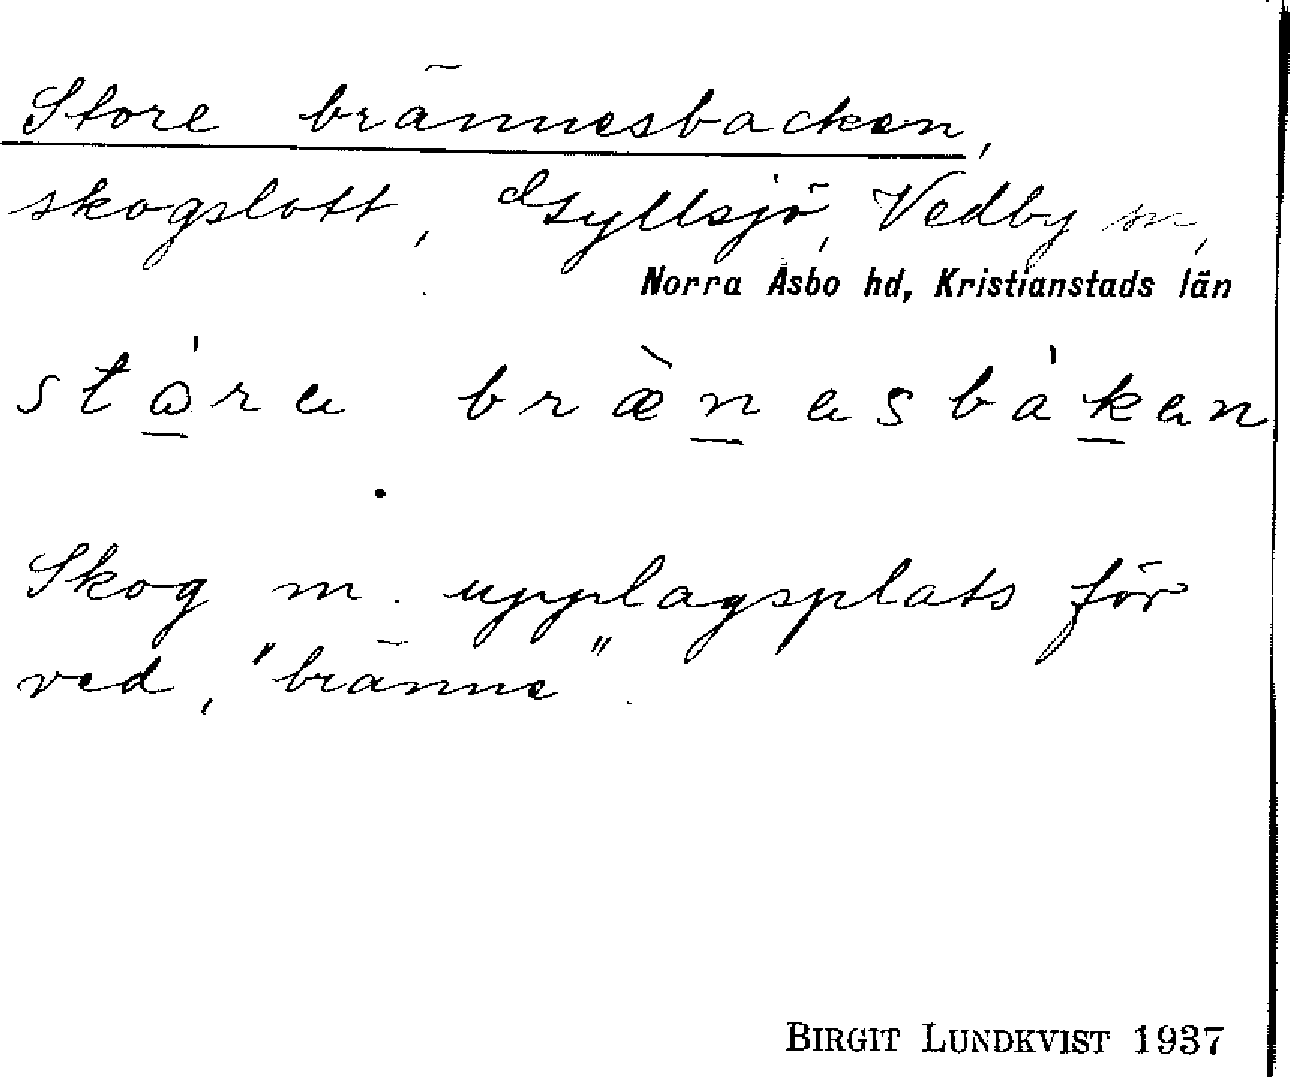 Store brännesbacken,
skogslott, Gyllsjö, Vedby sn,
Norra Åsbo hd, Kristianstads län
Skog m. upplagsplats för
ved, "bränne".
BIRGIT LUNDKVIST 1937